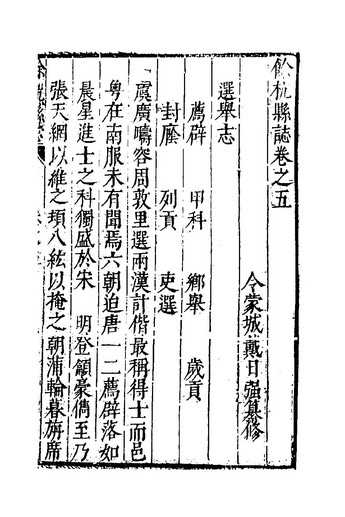 餘杭縣誌卷之五
令蒙城戴日強纂修
選舉志
薦辟 甲科 鄉舉 歲貢
封廕 列貢 吏選
虞廣疇容周敦里選兩漢計偕最稱得士而邑
粵在南服未有聞焉六朝迨唐一二薦辟落如
晨星進士之科獨盛於宋 明登額豪儁至乃
張天網以維之頓八絃以掩之朝蒲輪暮旃席